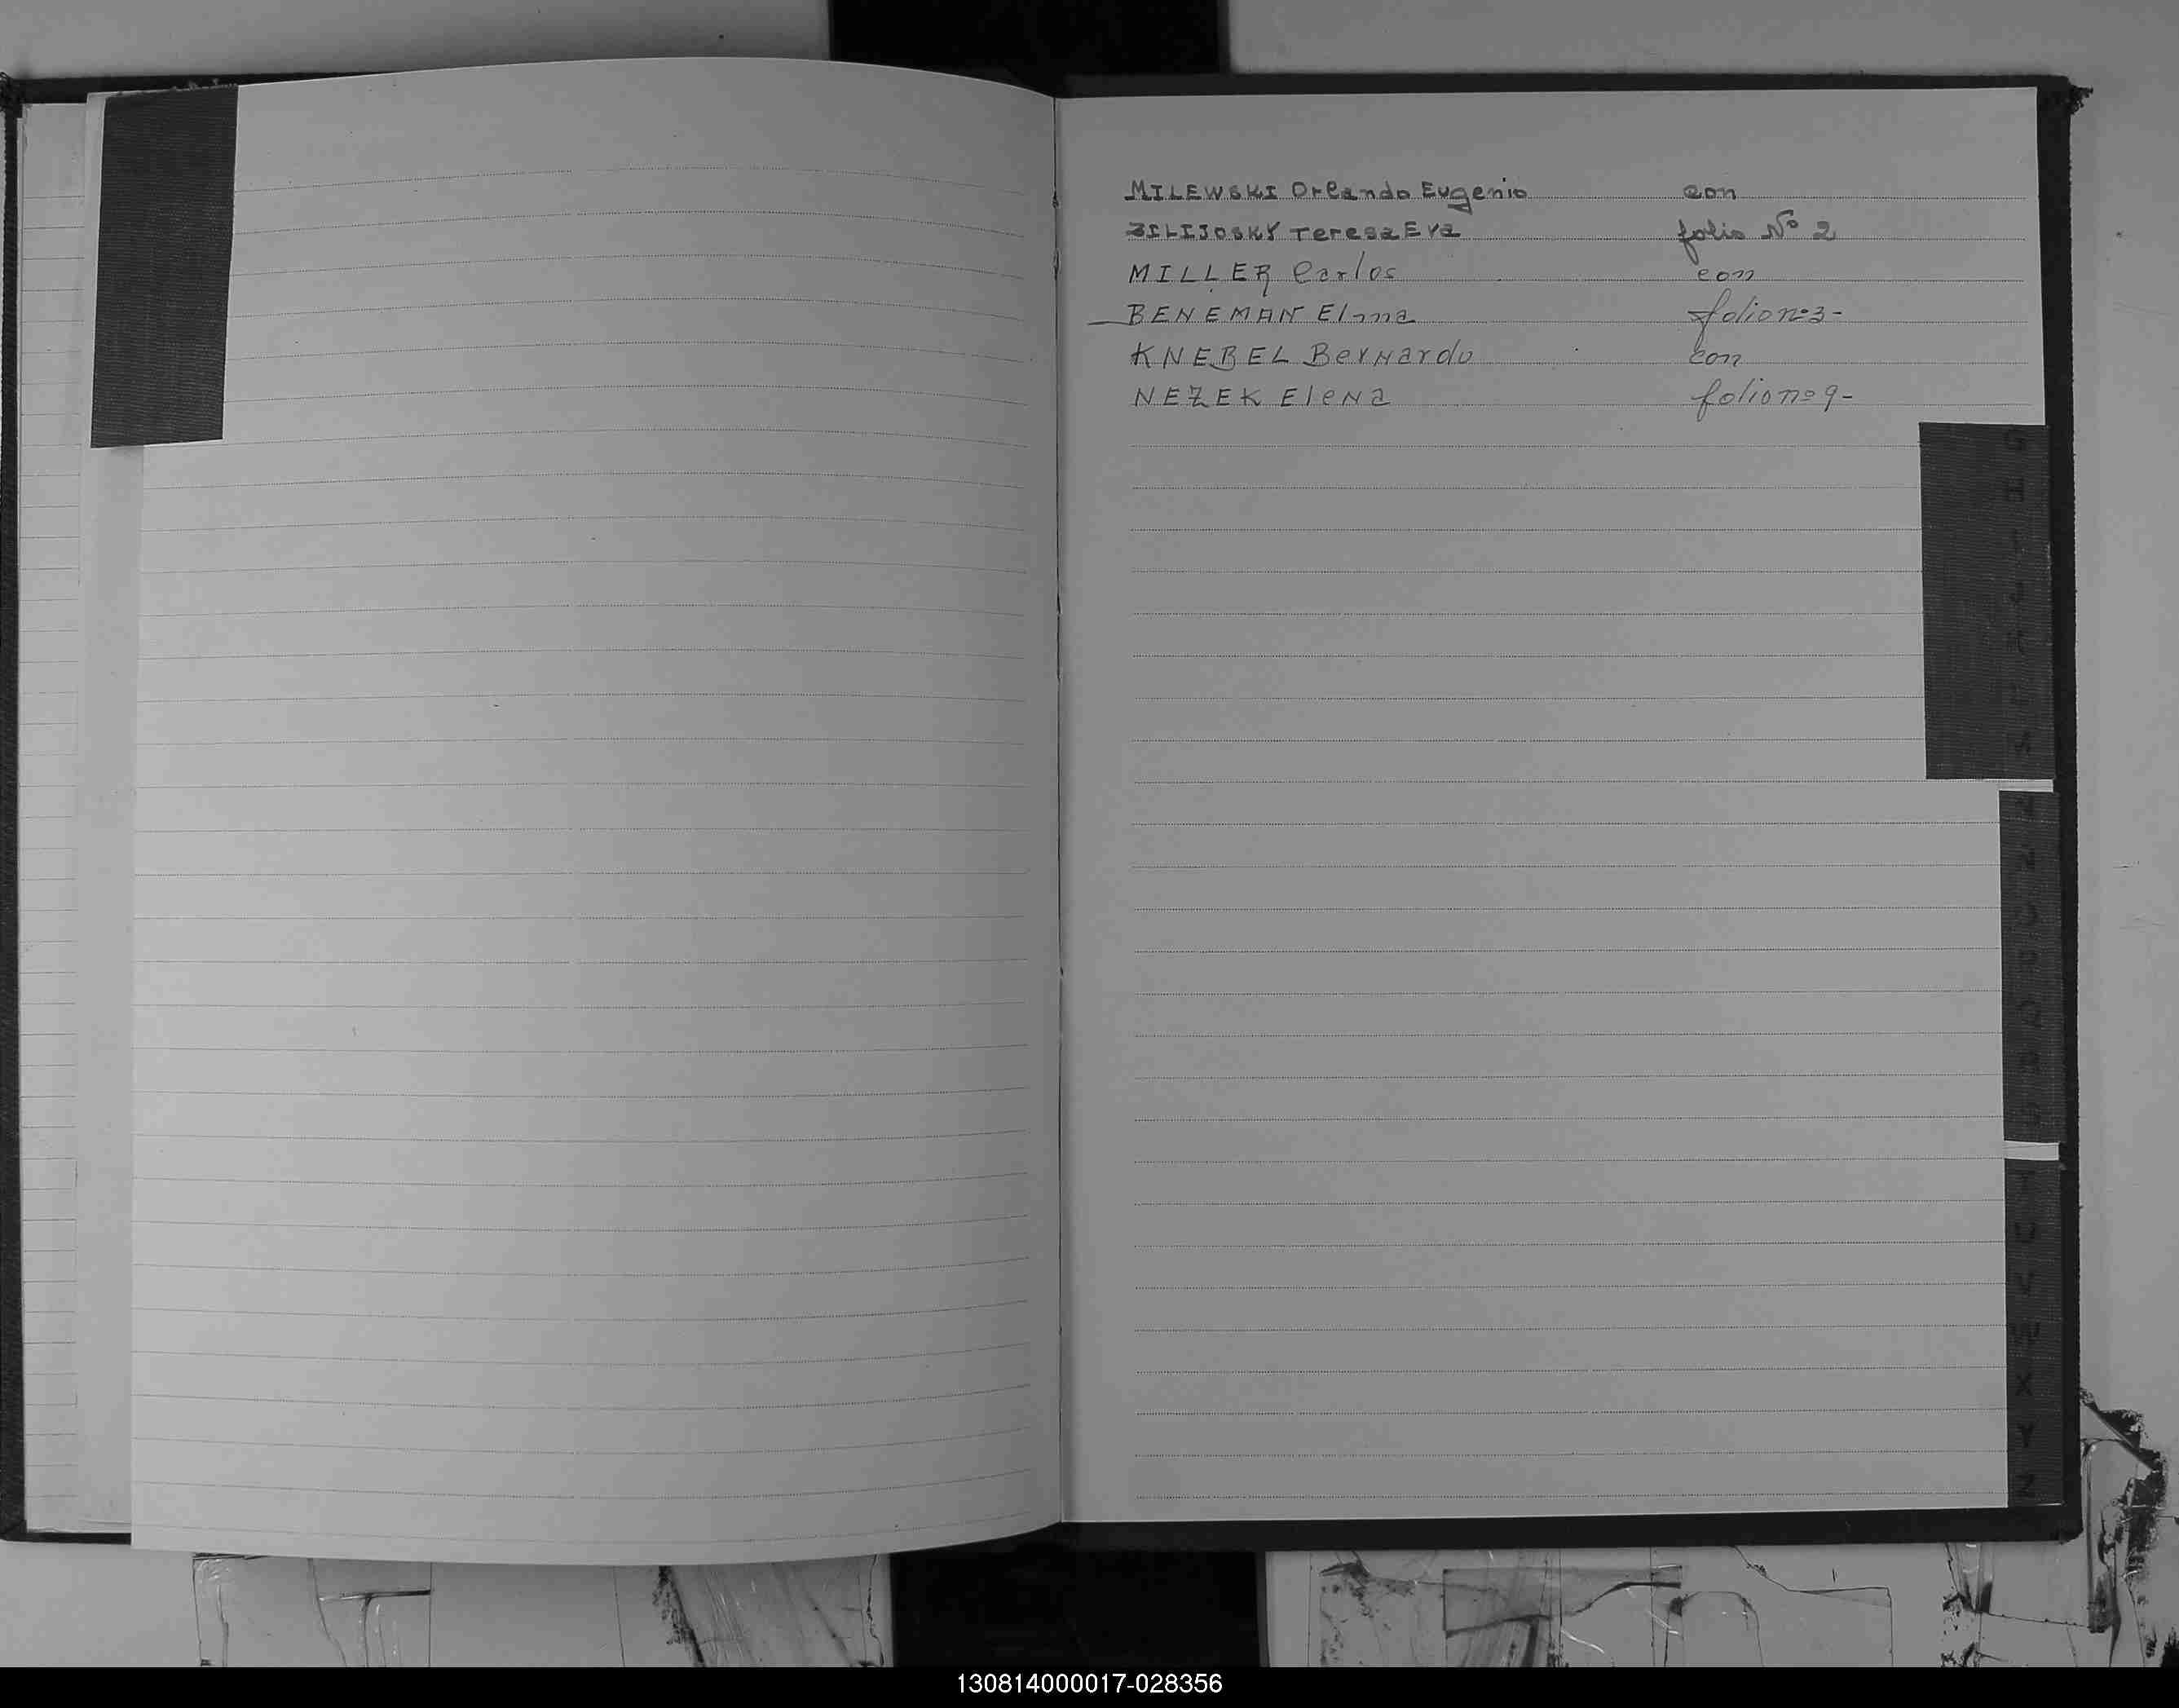 MILEWSKI Orlando Eugenio con
ZILIJOSKY Teresa Eva folio Nº 2
MILLER Carlos con
BENEMAN Elma folio nº 3-
KNEBEL Bernardo con
NEZEK Elena folio nº 9-
T
U
V
W
X
Y
Z
130814000017-028356